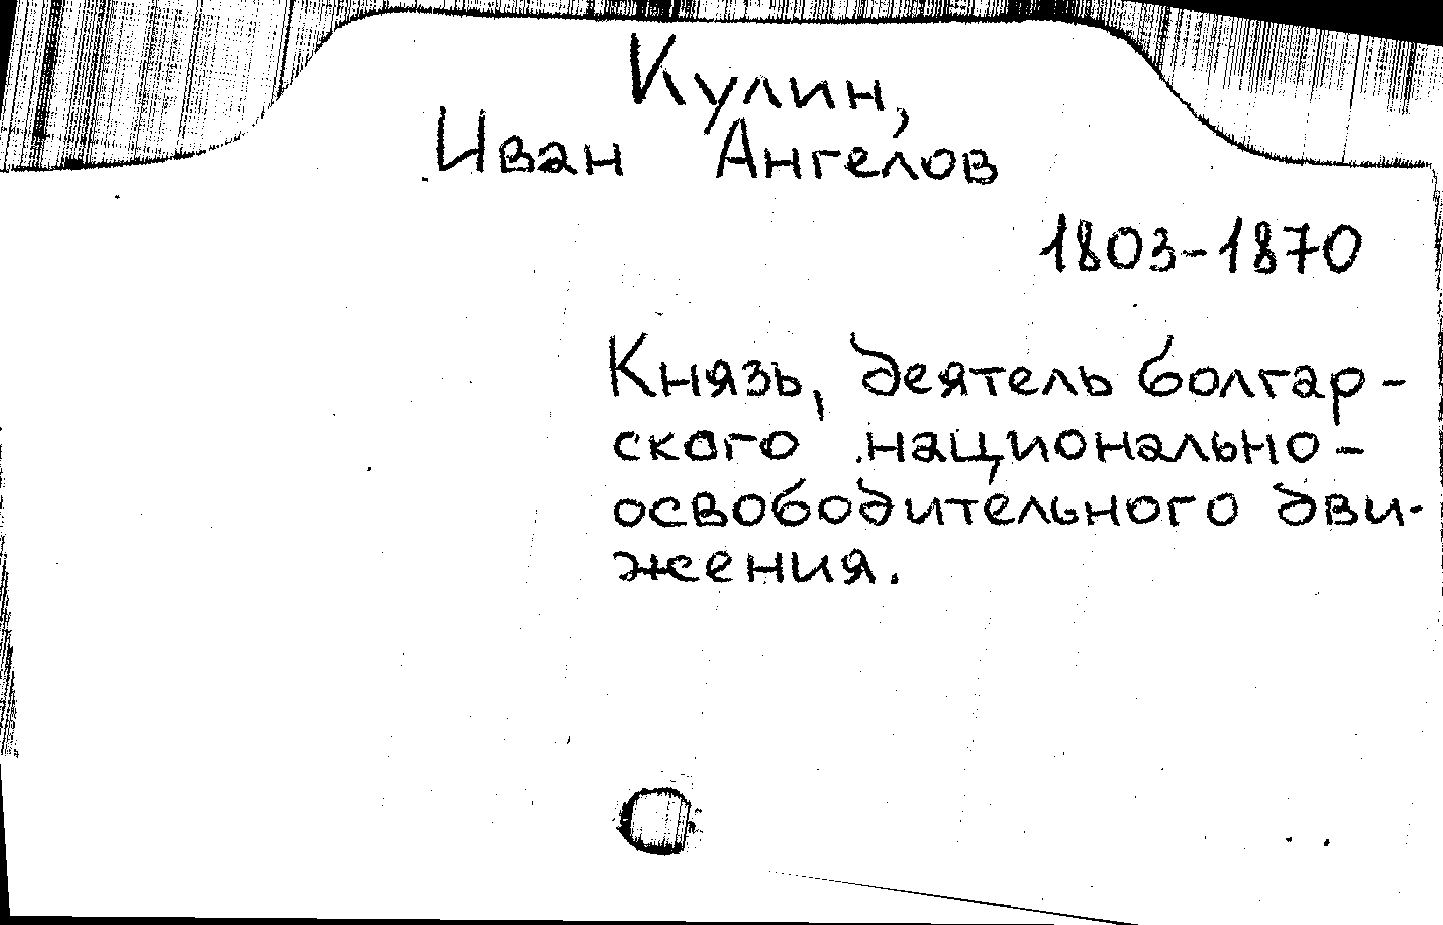 Кулин,
Иван Ангелов
1803-1870
Князь, деятель болгар-
ского национально-
освободительного дви-
жения.